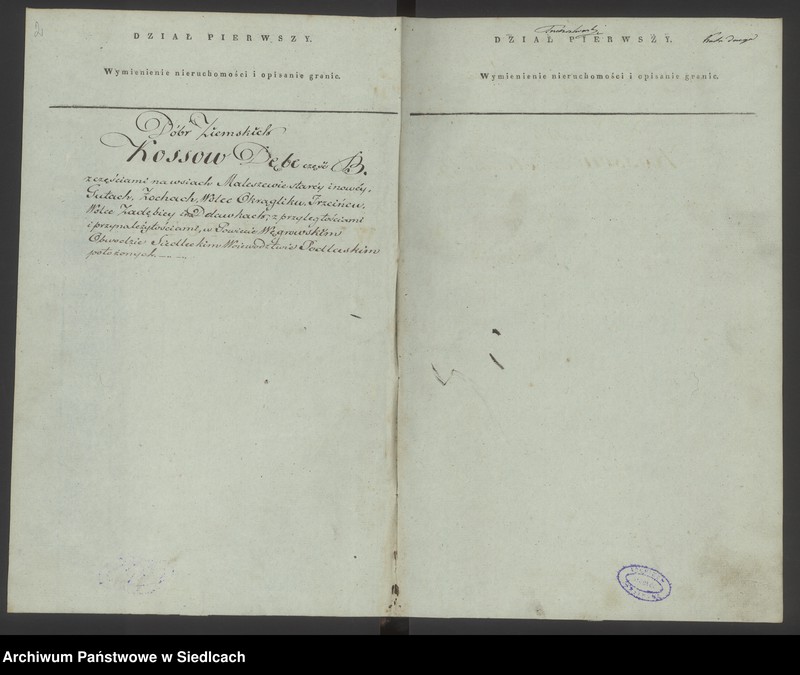 2.
DZIAŁ PIERWSZY.
Wymienienie nieruchomości i opisanie granic.
Dóbr Ziemskich
Kossow Dębe część B.
z częściami na wsiach Maleszewie staréy i nowéy,
Gutach, Żochach, Wólce Okrągliku, Trzcińcu,
Wólce Zadębiey i nad stawkach; z przyległościami
i przynależytościami, w Powiecie Węgrowskim
Obwodzie Siedleckim Województwie Podlaskim
położonych
DZIAŁ PIERWSZY.
Karta Druga
Wymienienie nieruchomości i opisanie granic.
Archiwum Państwowe w Siedlcach